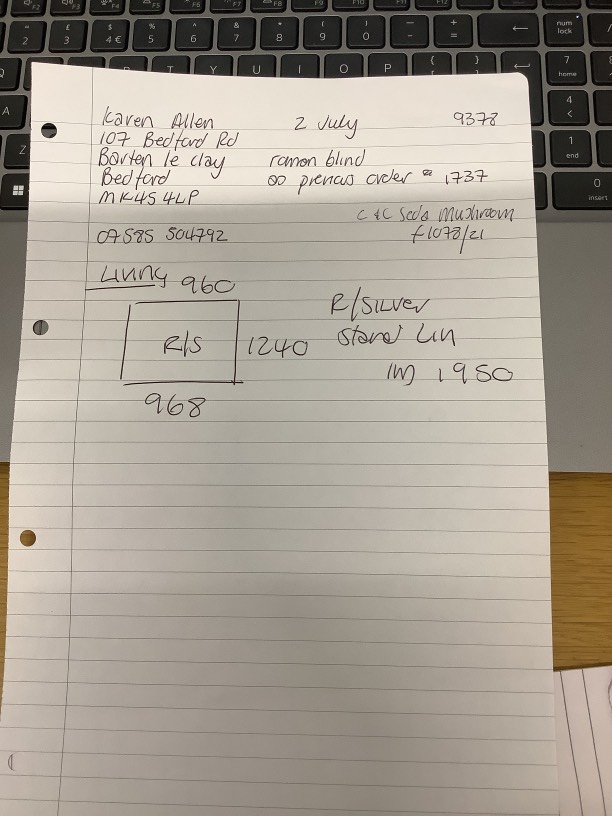 Karen Allen 2 July 9378
107 Bedford Rd
Barton le clay roman blind
Bedford as previous order 1737
MK45 4LP
C &C Soda Mushroom
07585 504792 £1078/21
Living 960
R/Silver
R/S 1240 stand Lin
1950
968